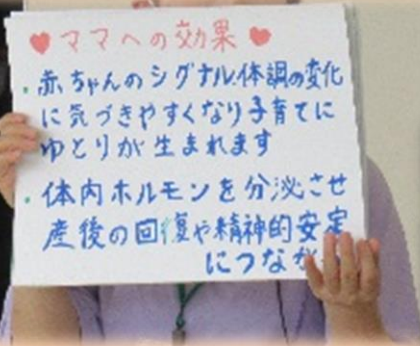 ♥ママへの効果♥
・赤ちゃんのシグナル、体調の変化
に気づきやすくなり子育てに
ゆとりが生まれます
・体内ホルモンを分泌させ
産後の回復や精神的安定
につなが